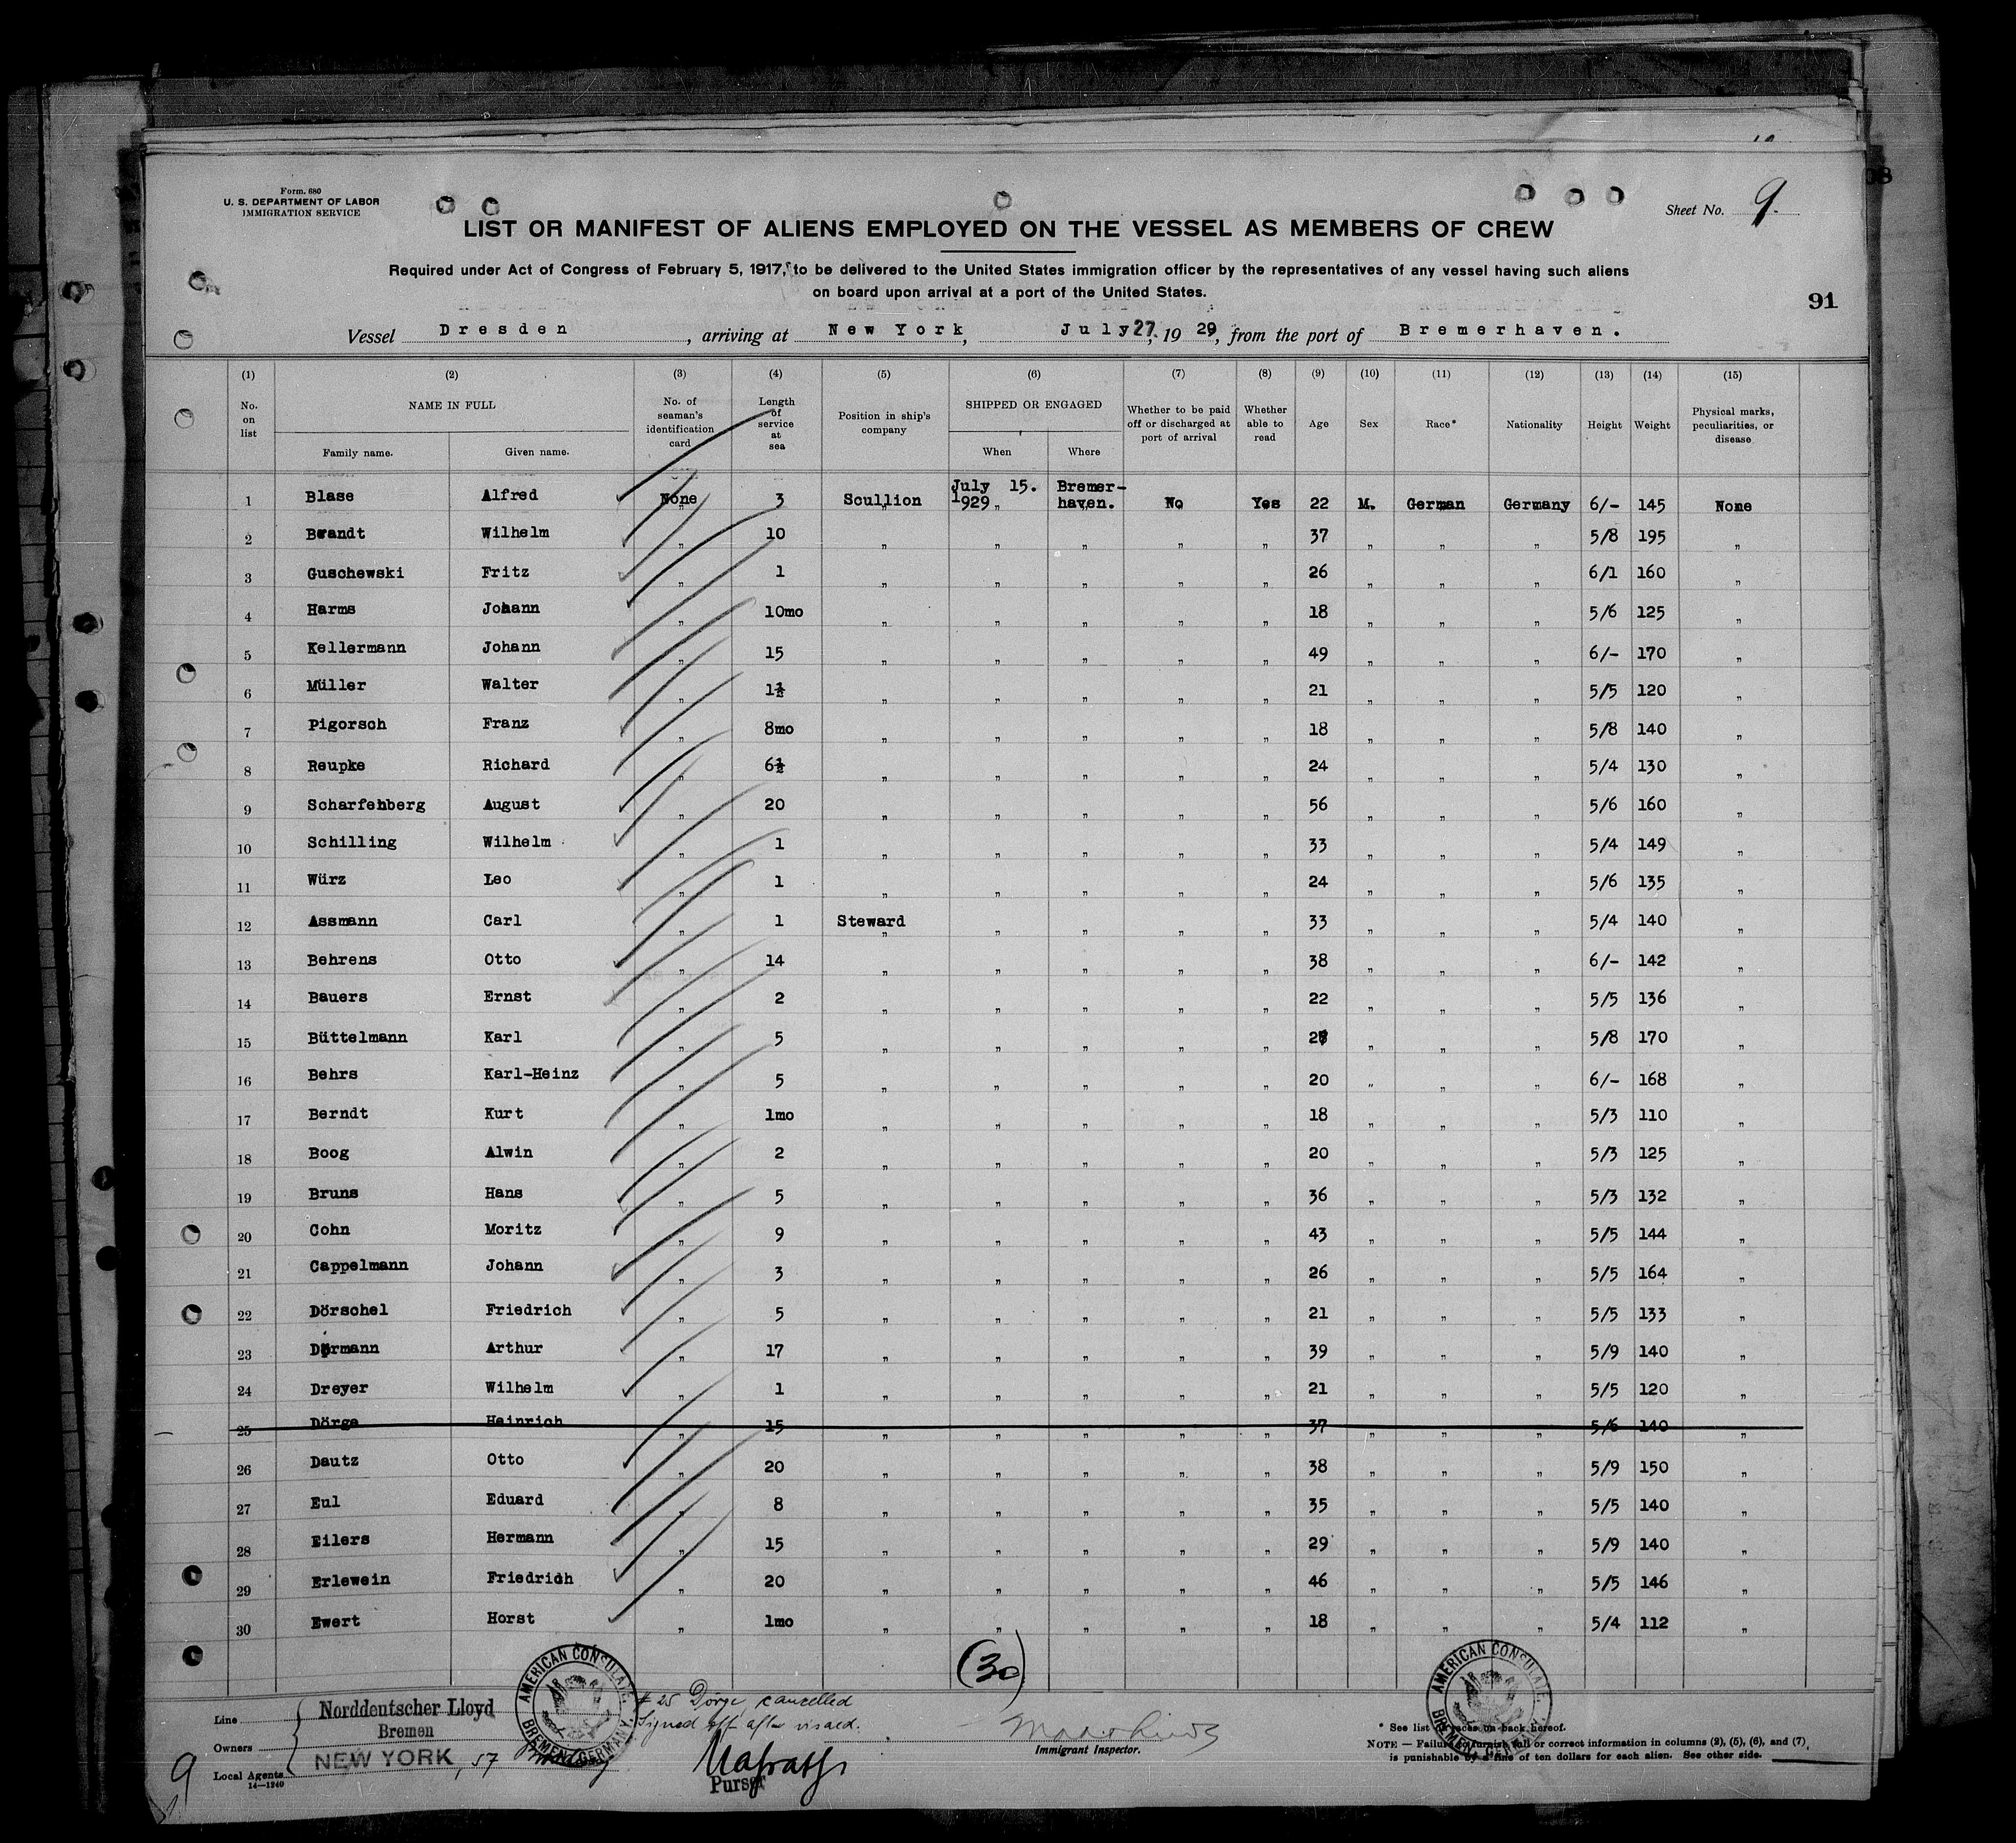 Form. 680
U. S. DEPARTMENT OF LABOR
IMMIGRATION SERVICE
Sheet No. 9.
LIST OR MANIFEST OF ALIENS EMPLOYED ON THE VESSEL AS MEMBERS OF CREW
Required under Act of Congress of February 5, 1917, to be delivered to the United States immigration officer by the representatives of any vessel having such aliens
on board upon arrival at a port of the United States.
91
Vessel Dresden, arriving at New York, July 27, 1929, from the port of Bremerhaven.
(1) (2) (3) (4) (5) (6) (7) (8) (9) (10) (11) (12) (13) (14) (15)
No. on list NAME IN FULL Family name. Given name. No. of seaman's identification card Length of service at sea Position in ship's company SHIPPED OR ENGAGED When Where Whether to be paid off or discharged at port of arrival Whether able to read Age Sex Race* Nationality Height Weight Physical marks, peculiarities, or disease
1 Blase Alfred None 3 Scullion July 15. 1929 Bremer-haven. No Yes 22 M. German Germany 6/- 145 None
2 Brandt Wilhelm " 10 " " " " " 37 " " " 5/8 195 "
3 Guschewski Fritz " 1 " " " " " 26 " " " 6/1 160 "
4 Harms Johann " 10mo " " " " " 18 " " " 5/6 125 "
5 Kellermann Johann " 15 " " " " " 49 " " " 6/- 170 "
6 Müller Walter " 1½ " " " " " 21 " " " 5/5 120 "
7 Pigorsch Franz " 8mo " " " " " 18 " " " 5/8 140 "
8 Reupke Richard " 6½ " " " " " 24 " " " 5/4 130 "
9 Scharfenberg August " 20 " " " " " 56 " " " 5/6 160 "
10 Schilling Wilhelm " 1 " " " " " 33 " " " 5/4 149 "
11 Würz Leo " 1 " " " " " 24 " " " 5/6 135 "
12 Assmann Carl " 1 Steward " " " " 33 " " " 5/4 140 "
13 Behrens Otto " 14 " " " " " 38 " " " 6/- 142 "
14 Bauers Ernst " 2 " " " " " 22 " " " 5/5 136 "
15 Büttelmann Karl " 5 " " " " " " " " 5/8 170 "
16 Behrs Karl-Heinz " 5 " " " " " 20 " " " 6/- 168 "
17 Berndt Kurt " 1mo " " " " " 18 " " " 5/3 110 "
18 Boog Alwin " 2 " " " " " 20 " " " 5/3 125 "
19 Bruns Hans " 5 " " " " " 36 " " " 5/3 132 "
20 Cohn Moritz " 9 " " " " " 43 " " " 5/5 144 "
21 Cappelmann Johann " 3 " " " " " 26 " " " 5/5 164 "
22 Dörschel Friedrich " 5 " " " " " 21 " " " 5/5 133 "
23 Dörmann Arthur " 17 " " " " " 39 " " " 5/9 140 "
24 Dreyer Wilhelm " 1 " " " " " 21 " " " 5/5 120 "
25 Dörge Heinrich " 15 " " " " " 37 " " " 5/6 140 "
26 Dautz Otto " 20 " " " " " 38 " " " 5/9 150 "
27 Eul Eduard " 8 " " " " " 35 " " " 5/5 140 "
28 Eilers Hermann " 15 " " " " " 29 " " " 5/9 140 "
29 Erlewein Friedrich " 20 " " " " " 46 " " " 5/5 146 "
30 Ewert Horst " 1mo " " " " " 18 " " " 5/4 112 "
(30)
AMERICAN CONSULATE. BREMEN, GERMANY.
AMERICAN CONSULATE. BREMEN, GERMANY.
# 25 Dörge, cancelled
Signed off after visaed.
Line
Owners
Local Agents
Norddeutscher Lloyd
Bremen
NEW YORK, 57
14—1240
Purser
Immigrant Inspector.
* See list of races on back hereof.
NOTE — Failure to furnish full or correct information in columns (2), (5), (6), and (7),
is punishable by a fine of ten dollars for each alien. See other side.
9